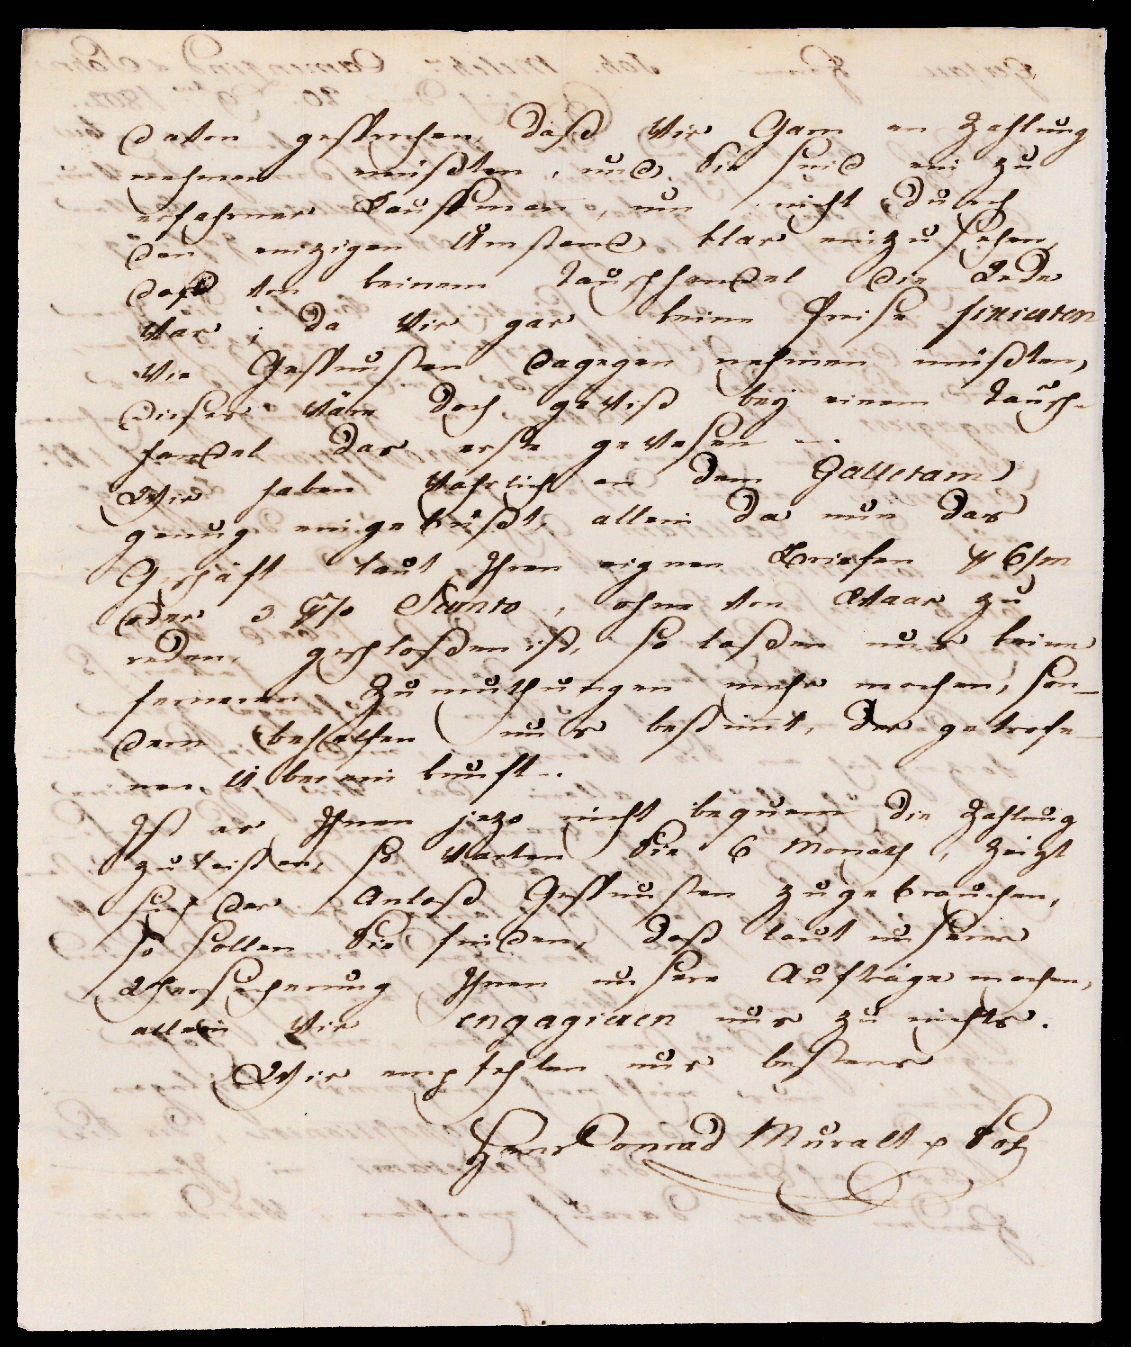 davon gesprochen, daß wir Garn an Zahlung
nehmen müßten, und Sie sind ein zu
erfahrner Kauffman, um nicht durch
den einzigen Umstand klar einzusehen,
daß von keinem Tauschhandel die Rede
war; da wir gar keine Preise fixierten
wie Gespunsten dagegen nehmen müßten,
dieses wäre doch gewiß bey einem Tausch-
handel das erste gewesen.
Wir haben wahrlich an dem Galletami
genug eingebüßt, allein da nun das
Geschäft laut Ihren eignen Briefen p 6/m
oder 3 p% Sconto, ohne von Waar zu
reden, geschloßen ist, so laßen uns keine
ferneren Zumuthungen mehr machen, son-
dern behelfen uns bestimt, der getrofe-
nen Übereinkunft.
Ist es Ihnen jezo nicht bequem die Zahlung
zu leisten, so warten Sie 6 Monath, zeigt
sich der Anlaß Gespunsten zu gebrauchen,
so sollen Sie finden, daß laut unserer
Versicherung Ihnen unsere Aufträge machen,
allein wir engagieren uns zu nichts.
Wir empfehlen uns bestens
Hans Conrad Muralt & Sohn